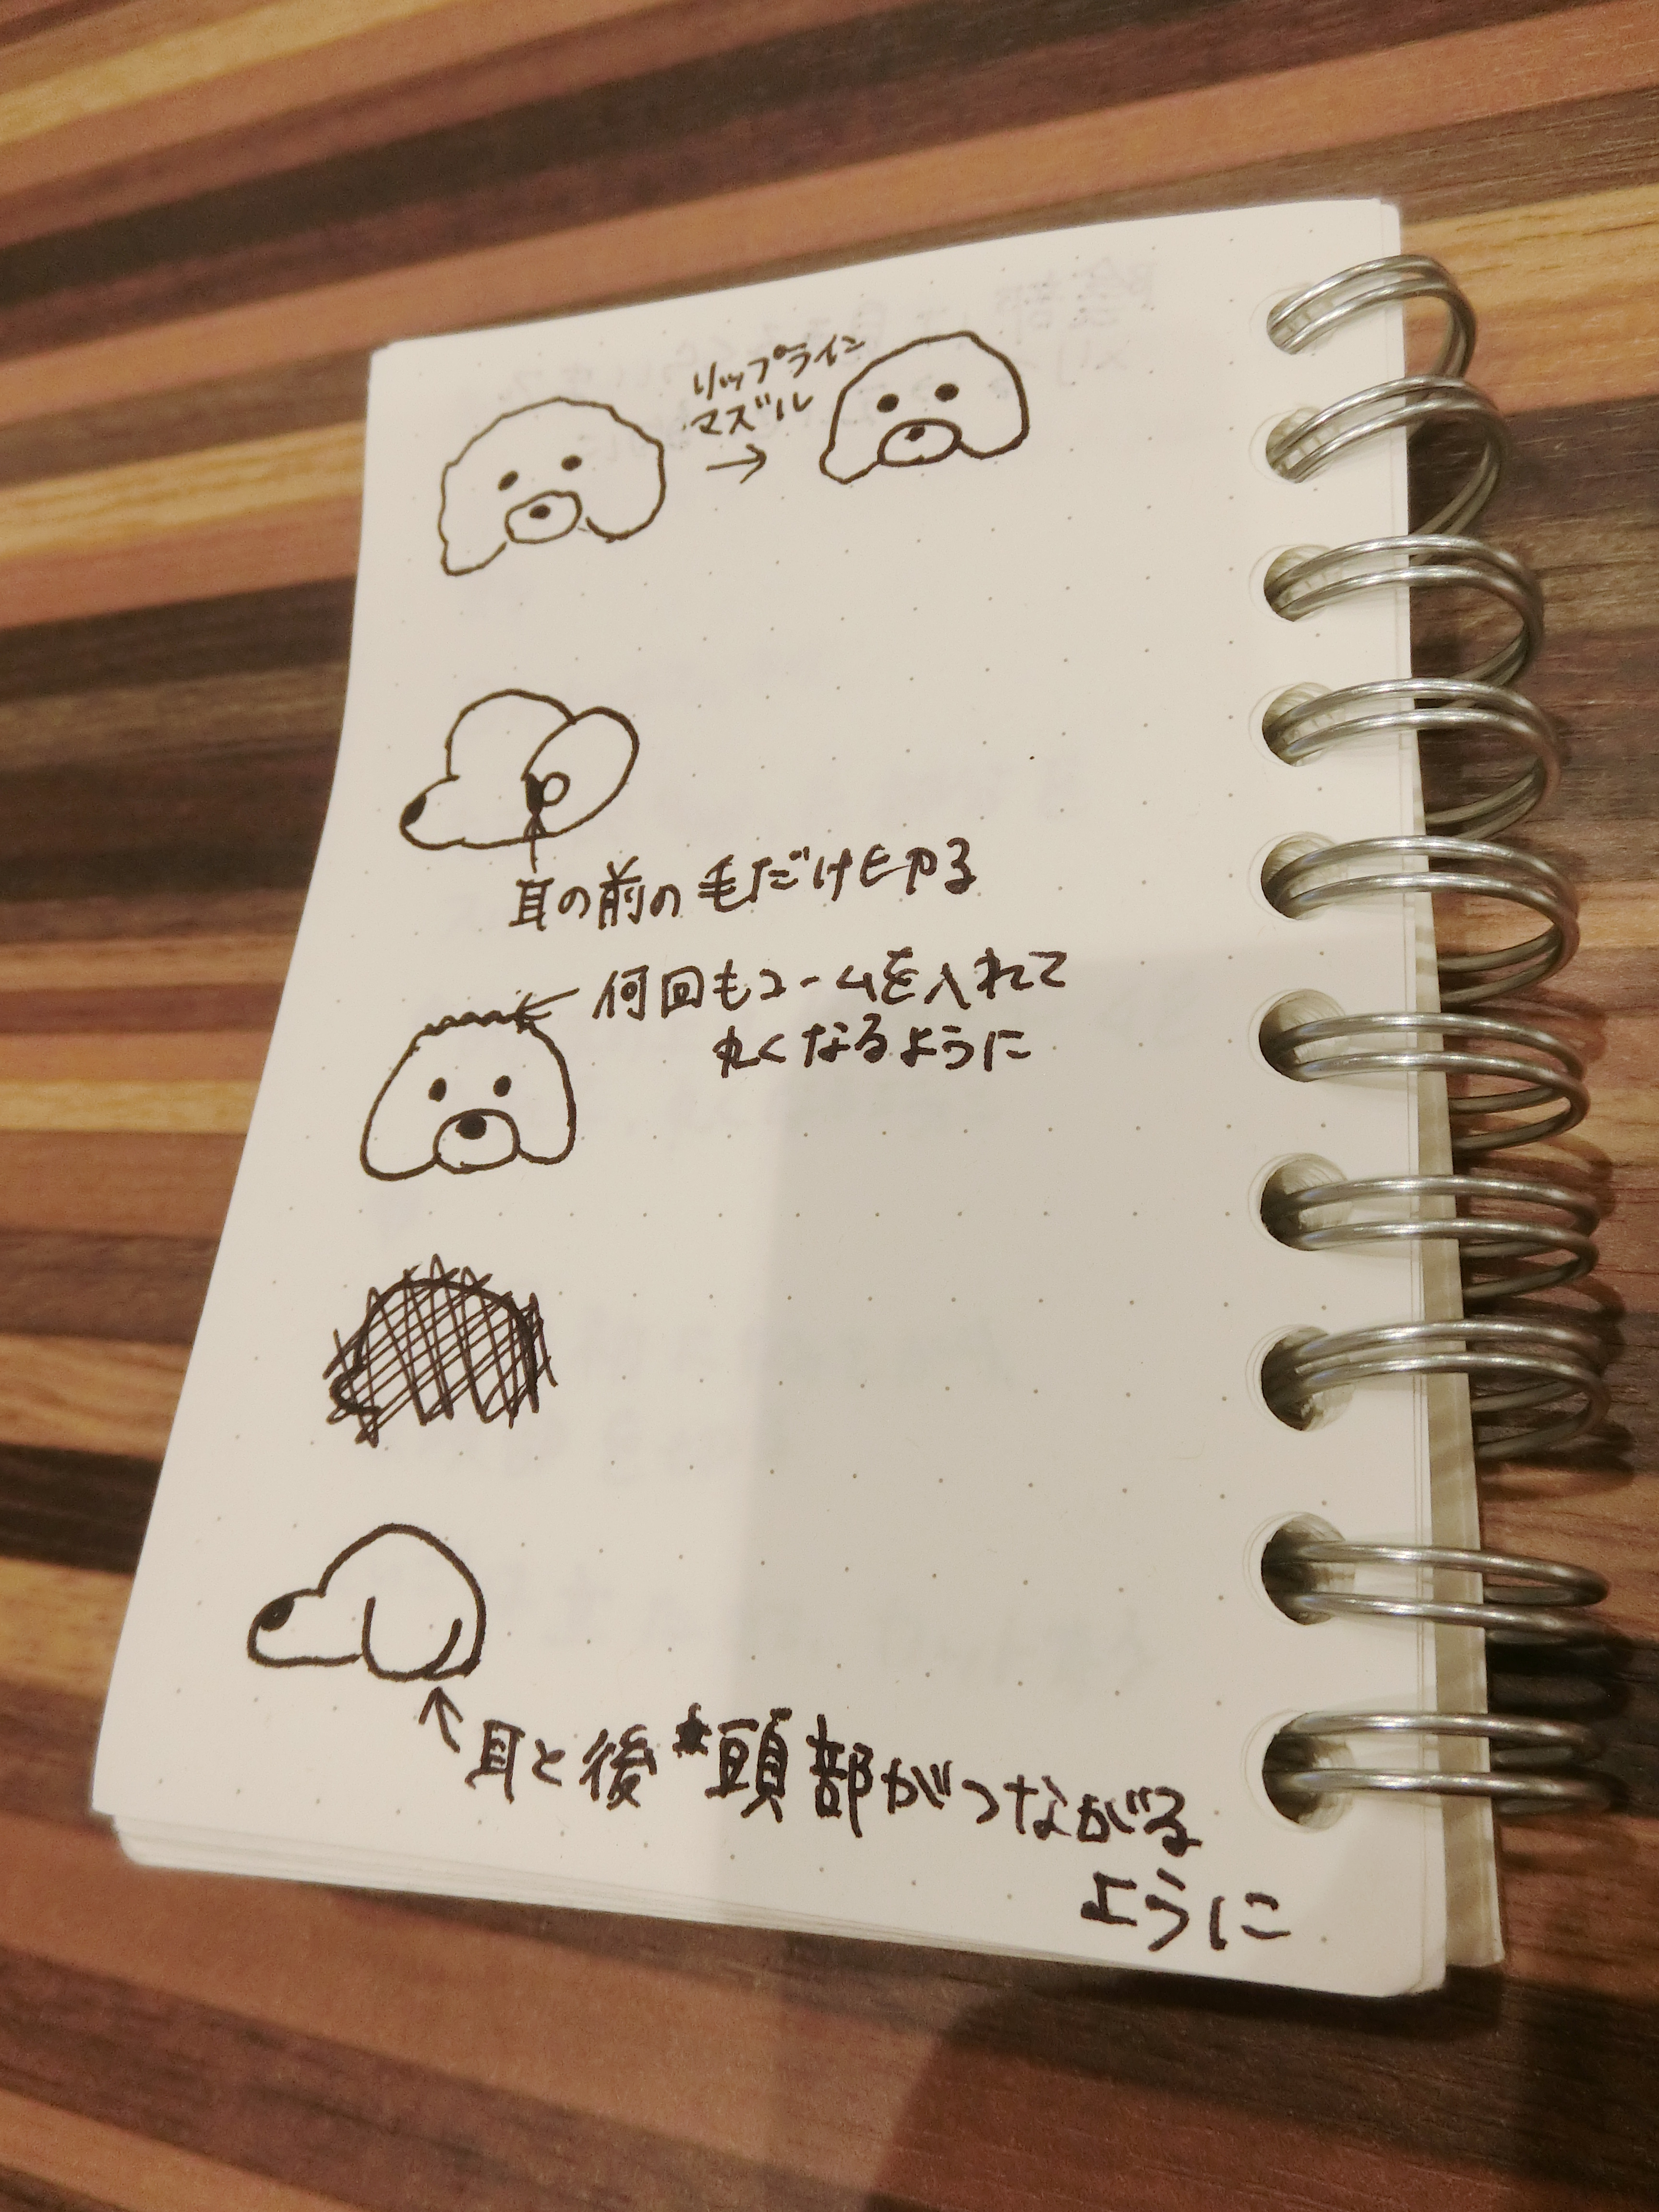 リップライン
マズル
耳の前の毛だけヒゲる
何回もコームを入れて
丸くなるように
耳と後頭部がつながる
ように